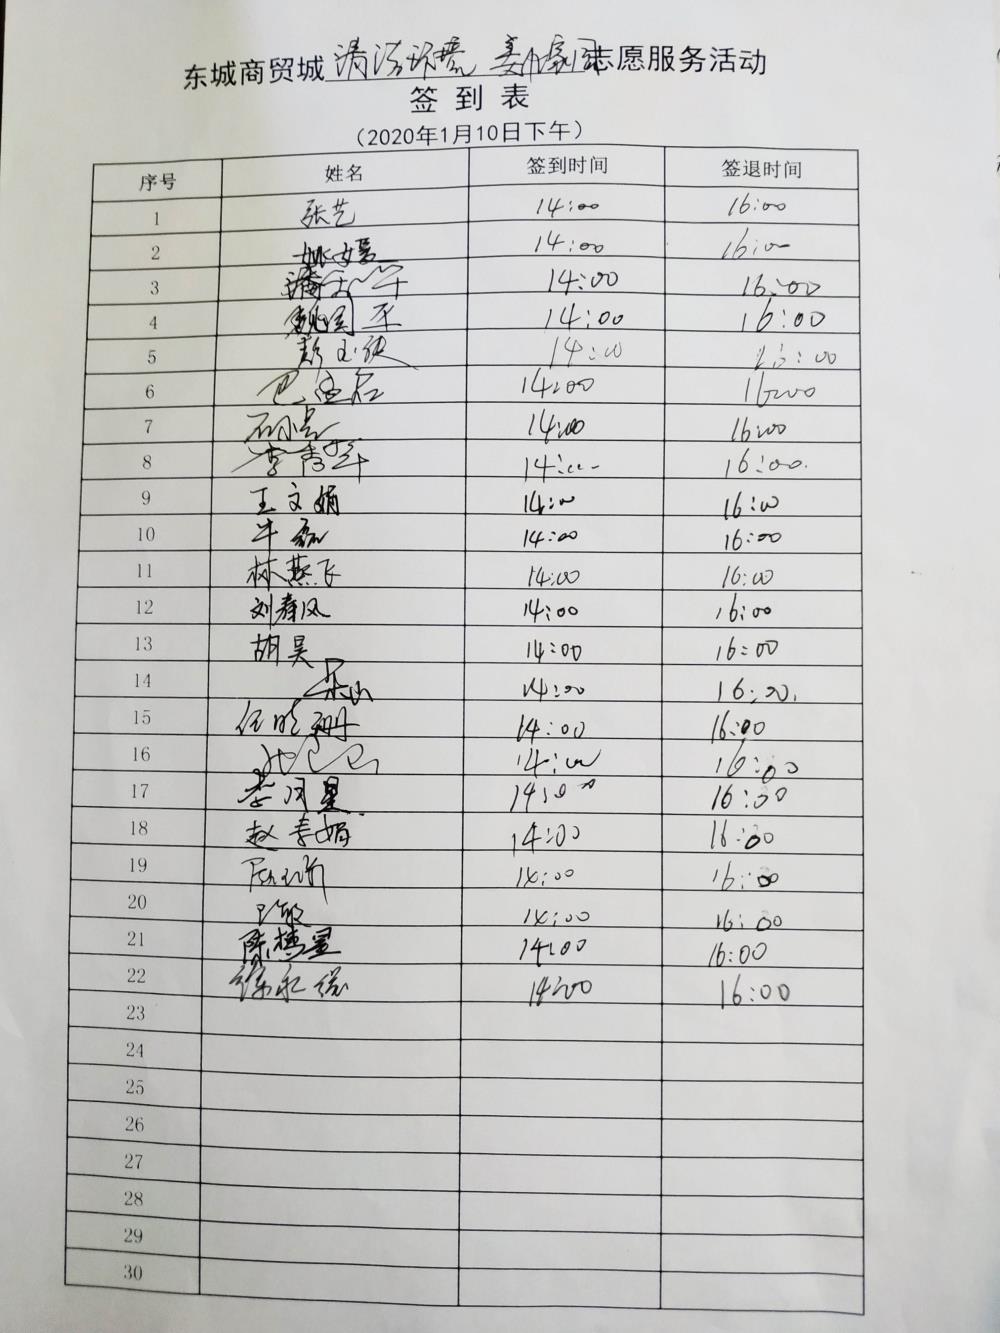 东城商贸城清洁环境 美化家园志愿服务活动
签到表
（2020年1月10日下午）
序号 姓名 签到时间 签退时间
1 张艺 14:00 16:00
2 姚婷 14:00 16:00
3 14:00 16:00
4 魏国平 14:00 16:00
5 彭玉侠 14:00 16:00
6 14:00 16:00
7 石小亮 14:00 16:00
8 李秀华 14:00 16:00.
9 王文娟 14:00 16:00
10 牛磊 14:00 16:00
11 林燕飞 14:00 16:00
12 刘春凤 14:00 16:00
13 胡昊 14:00 16:00
14 14:00 16:00.
15 任晓珊 14:00 16:00
16 14:00 16:00
17 李冈星 14:00 16:00
18 赵青娟 14:00 16:00
19 14:00 16:00
20 王敏 14:00 16:00
21 陈桂星 14:00 16:00
22 徐永俊 14:00 16:00
23
24
25
26
27
28
29
30